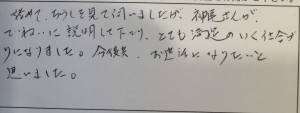 始めて、ちらしを見て伺いましたが、神尾さんが、
ていねいに説明して下り、とても満足のいく仕合が
りになりました。今後共、お世話になりたいと
思いました。